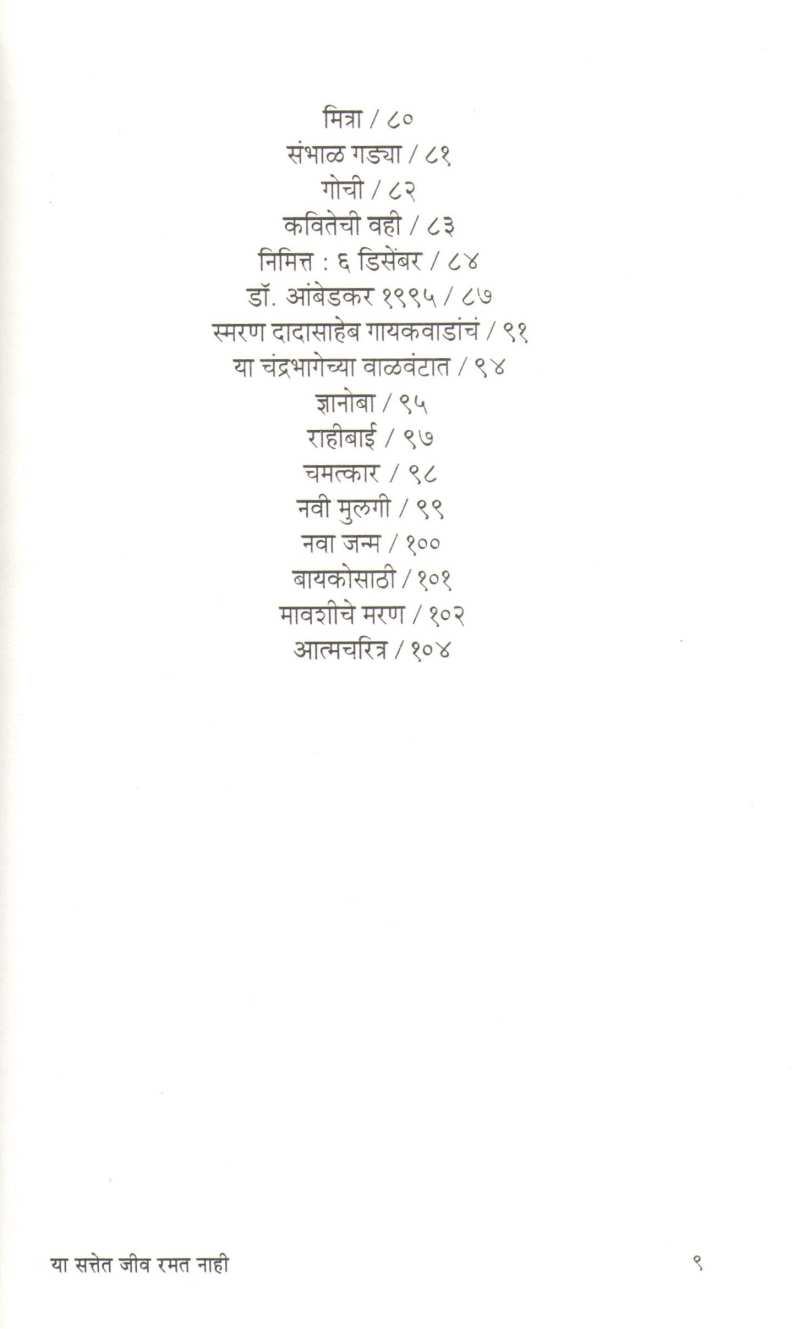 मित्रा / ८०
संभाळ गड्या / ८१
गोची / ८२
कवितेची वही / ८३
निमित्त : ६ डिसेंबर / ८४
डॉ. आंबेडकर १९९५ / ८७
स्मरण दादासाहेब गायकवाडांचं / ९१
या चंद्रभागेच्या वाळवंटात / ९४
ज्ञानोबा / ९५
राहीबाई / ९७
चमत्कार / ९८
नवी मुलगी / ९९
नवा जन्म / १००
बायकोसाठी / १०१
मावशीचे मरण / १०२
आत्मचरित्र / १०४
या सत्तेत जीव रमत नाही
९